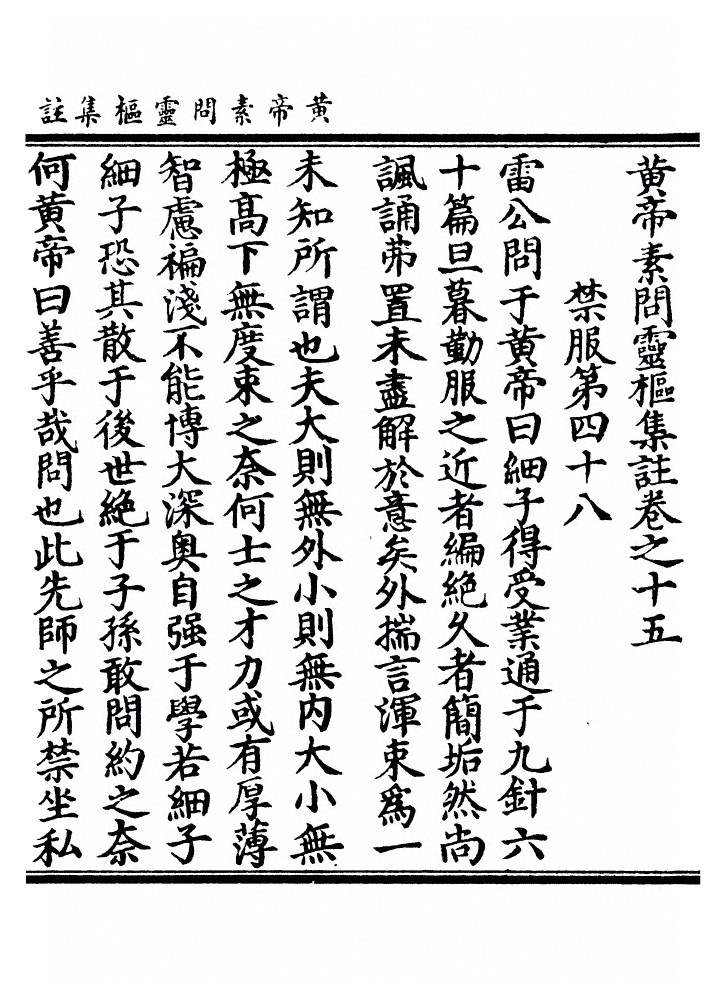 黄帝素問靈樞集註
黄帝素問靈樞集註卷之十五
禁服第四十八
雷公問于黄帝曰細子得受業通于九針六
十篇旦暮勤服之近者編絶久者簡垢然尚
諷誦弗置未盡解於意矣外揣言渾束爲一
未知所謂也夫大則無外小則無内大小無
極高下無度束之奈何士之才力或有厚薄
智慮褊淺不能博大深奥自强于學若細子
細子恐其散于後世絶于子孫敢問約之奈
何黄帝曰善乎哉問也此先師之所禁坐私